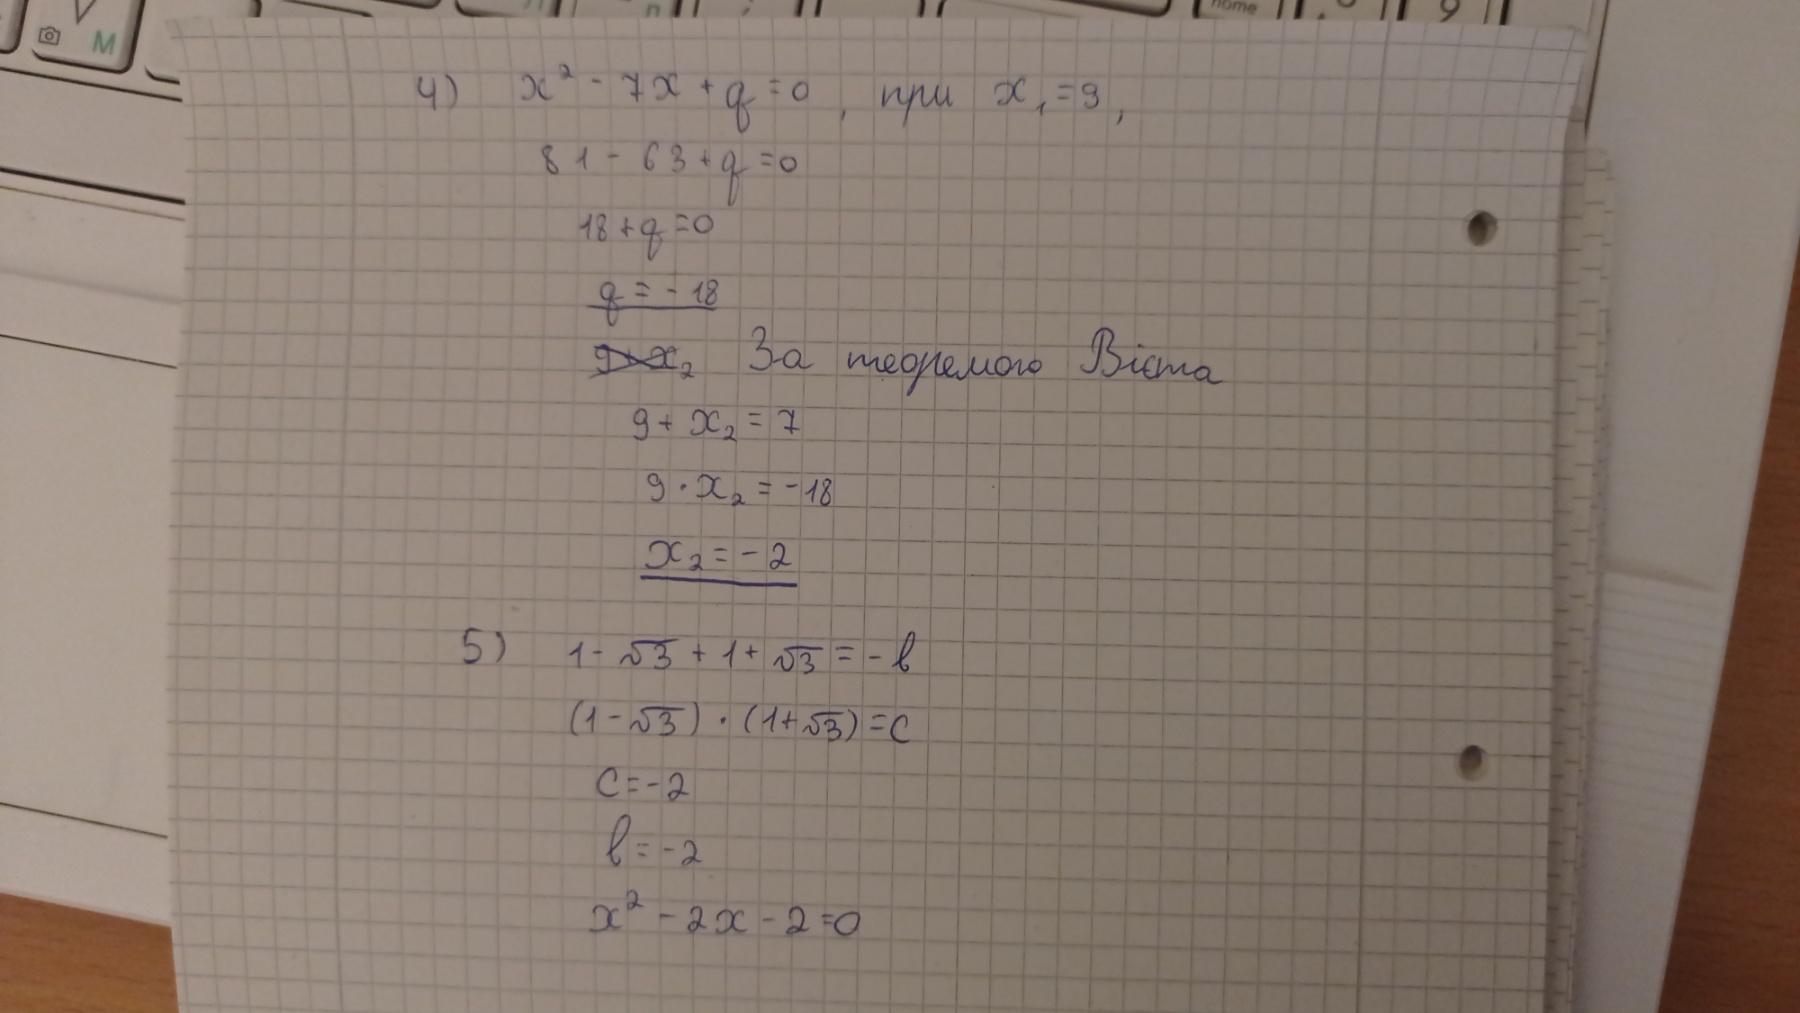 home
9
M
4) x² - 7x + q = 0, при x₁ = 9,
81 - 63 + q = 0
18 + q = 0
q = - 18
9 + x₂ За теоремою Вієта
9 + x₂ = 7
9 · x₂ = - 18
x₂ = - 2
5) 1 - √3 + 1 + √3 = - b
(1 - √3) · (1 + √3) = c
c = - 2
b = - 2
x² - 2x - 2 = 0